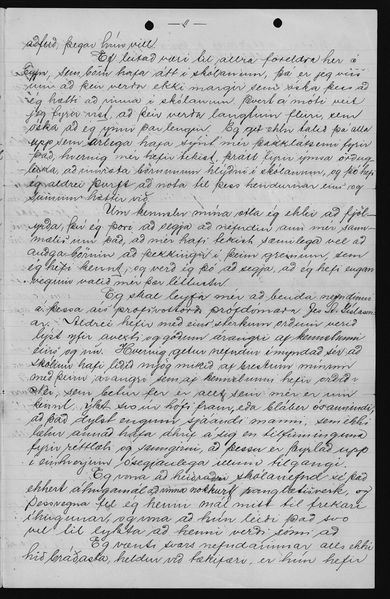 - 2 -
aðferð, þegar hún vill.
Ef leitað væri til allra foreldra hér í
sem börn hafa átt í skólanum, þá er jeg viss
um að þeir verða ekki margir sem óska þess að
ég hætti að vinna í skólanum. Þvert á móti veit
jeg fyrir víst, að þeir verða langtum fleiri, sem
óska að ég ynni þar lengur. Eg get ekki talið þá alla
upp sem árlega hafa sýnt mér þakklátsemi fyrir
það, hvernig mér hefir tekist, þrátt fyrir ýmsa örðug-
leika, að innræta börnunum hlýðni í skólanum, og þó hefi
eg aldrei þurft að nota til þess hendurnar eins og
sumum hættir við.
Um kennslu mína ætla ég ekki að fjöl-
yrða, því ég þori að segja að nefndin ann mér sann-
mælis um það, að mér hafi tekist sæmilega vel að
auðga börnin að þekkingu í þeim greinum, sem
eg hefi kennt, og verð eg þó að segja, að eg hefi engan
veginn valið mér þær léttustu.
Eg skal leyfa mér að benda nefndinni
á þessa
ar. Aldrei hefir með eins sterkum orðum verið
lýst yfir ávexti og góðum árangri af kennslunni
eins og nú. Hvernig getur nefndin ímyndað sér að
skólinn hafi liðið mjög mikið af brestum mínum
með þeim árangri sem af kennslunni hefir orðið
sem betur fer er allt sem mér er um
kennt, ýkt svo úr hófi fram, eða bláber ósannindi,
að það dylst engum sjáandi manni, sem ekki
lætur annað hafa áhrif á sig en tilfinninguna
fyrir réttlæti og sanngirni, að þessu er þyrlað upp
í einhverjum ósegjanlega illum tilgangi.
Eg vona að heiðraða skólanefnd sé það
ekkert áhugamál að vinna nokkurt ranglætisverk, og
þessvegna fel ég henni mál mitt til frekari
íhugunar, og vona að hún leiði það svo
vel til lykta að henni verði sómi að.
Eg vænti svars nefndarinnar alls ekki
hið bráðasta, heldur við tækifæri, er hún hefir